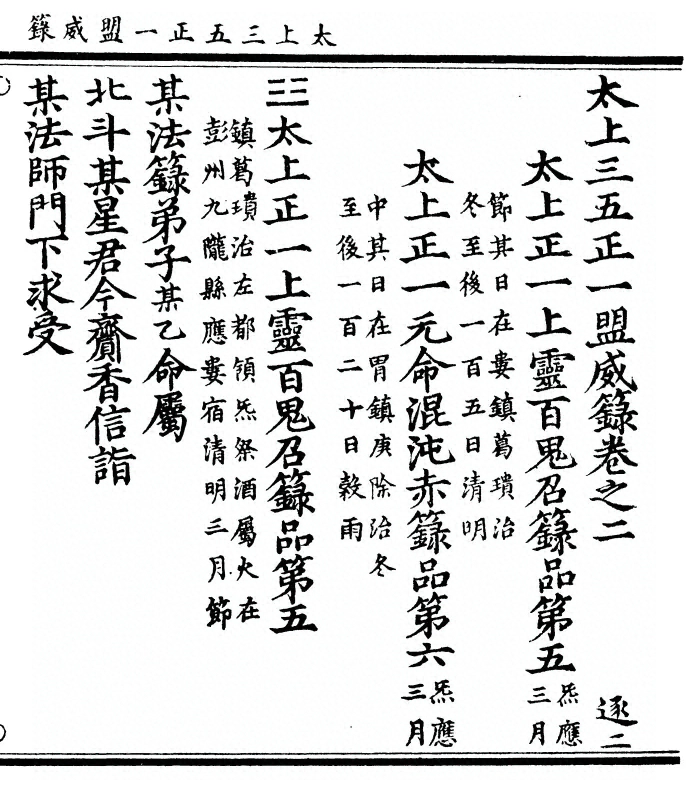 太上三五正一盟威籙
太上三五正一盟威籙卷之二 逐二
太上正一上靈百鬼召籙品第五 炁應
三月
節其日在婁鎮葛璝治
冬至後一百五日清明
太上正一元命混沌赤籙品第六 炁應
三月
中其日在胃鎮庚除治冬
至後一百二十日穀雨
太上正一上靈百鬼召籙品第五
鎮葛璝治左都領炁祭酒屬火在
彭州九隴縣應婁宿清明三月節
某法籙弟子某乙命屬
北斗某星君今齎香信詣
某法師門下求受